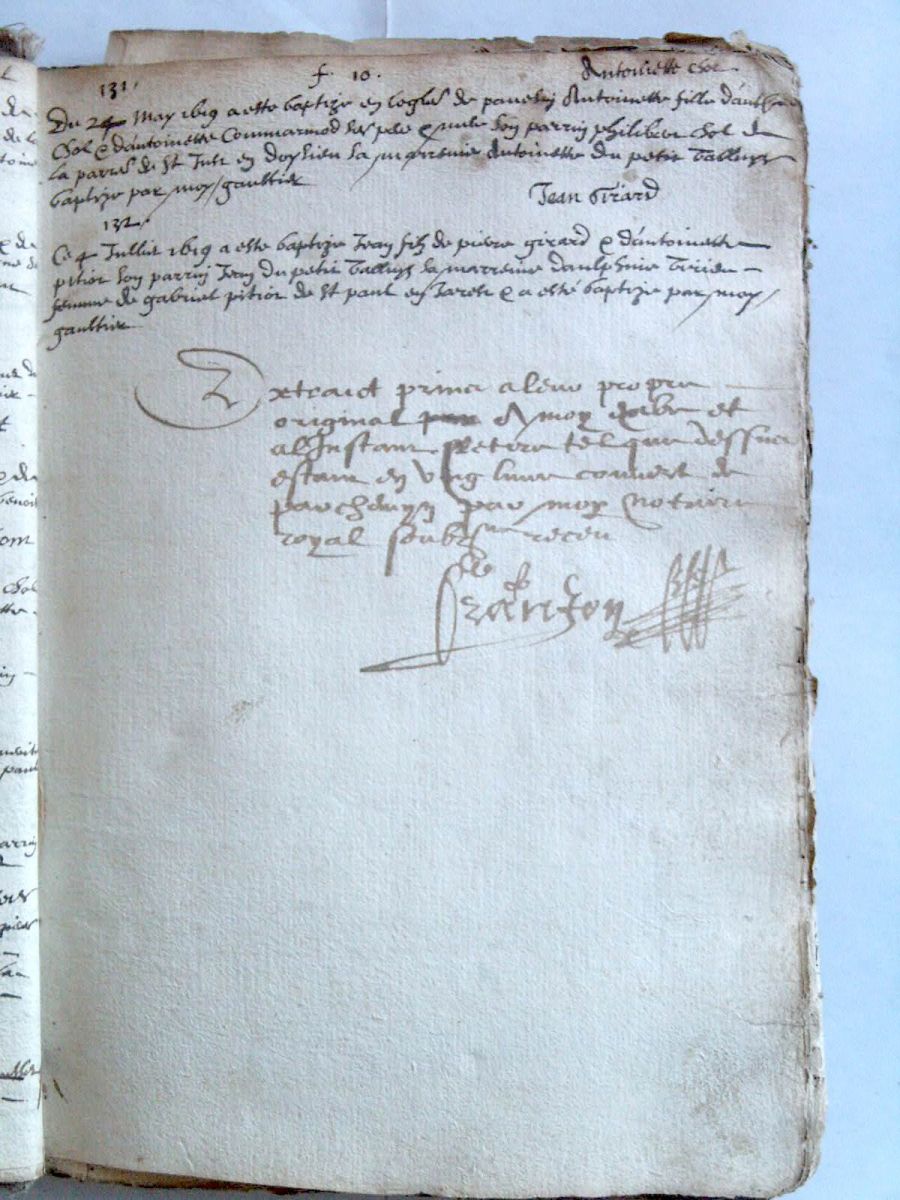 131. f. 10. Antoinette Chol
Du 24 May 1619 a este baptize en leglise de pavesin Antoinette fille d'anth
Chol & d'antoinette Commarmod ses pere & mere son parrin philiber Chol de
la parrs de St Just en doylieu sa marrenie Antoinette du petit Talluys
baptize par moy / gaultier
Jean Girard
132.
Ce 4 Jullie 1619 a este baptize Jean filz de pierre girard & d'antoinette
pitiot son parrin Jean du petit Talluys sa marreine daulphnie Tirieu
femme de gabriel pitiot de St paul en Jarest & a esté baptize par moy /
gaultier
Extraict prins a leur propre
original A moy exibe et
alInstant Retire tel que dessus
estant en Ung livre couvert de
parchemyn par moy Notaire
royal soubzne receu